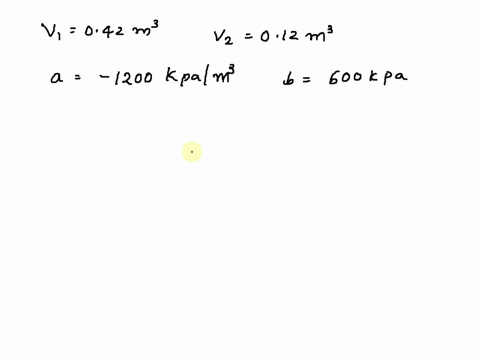 V₁ = 0.42 m³ V₂ = 0.12 m³
a = -1200 kpa/m³ b = 600 kpa